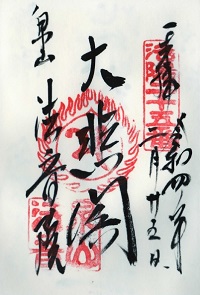 奉拝
洛陽二十五番
令和四年
月廿五日
大悲閣
泉山 法音院